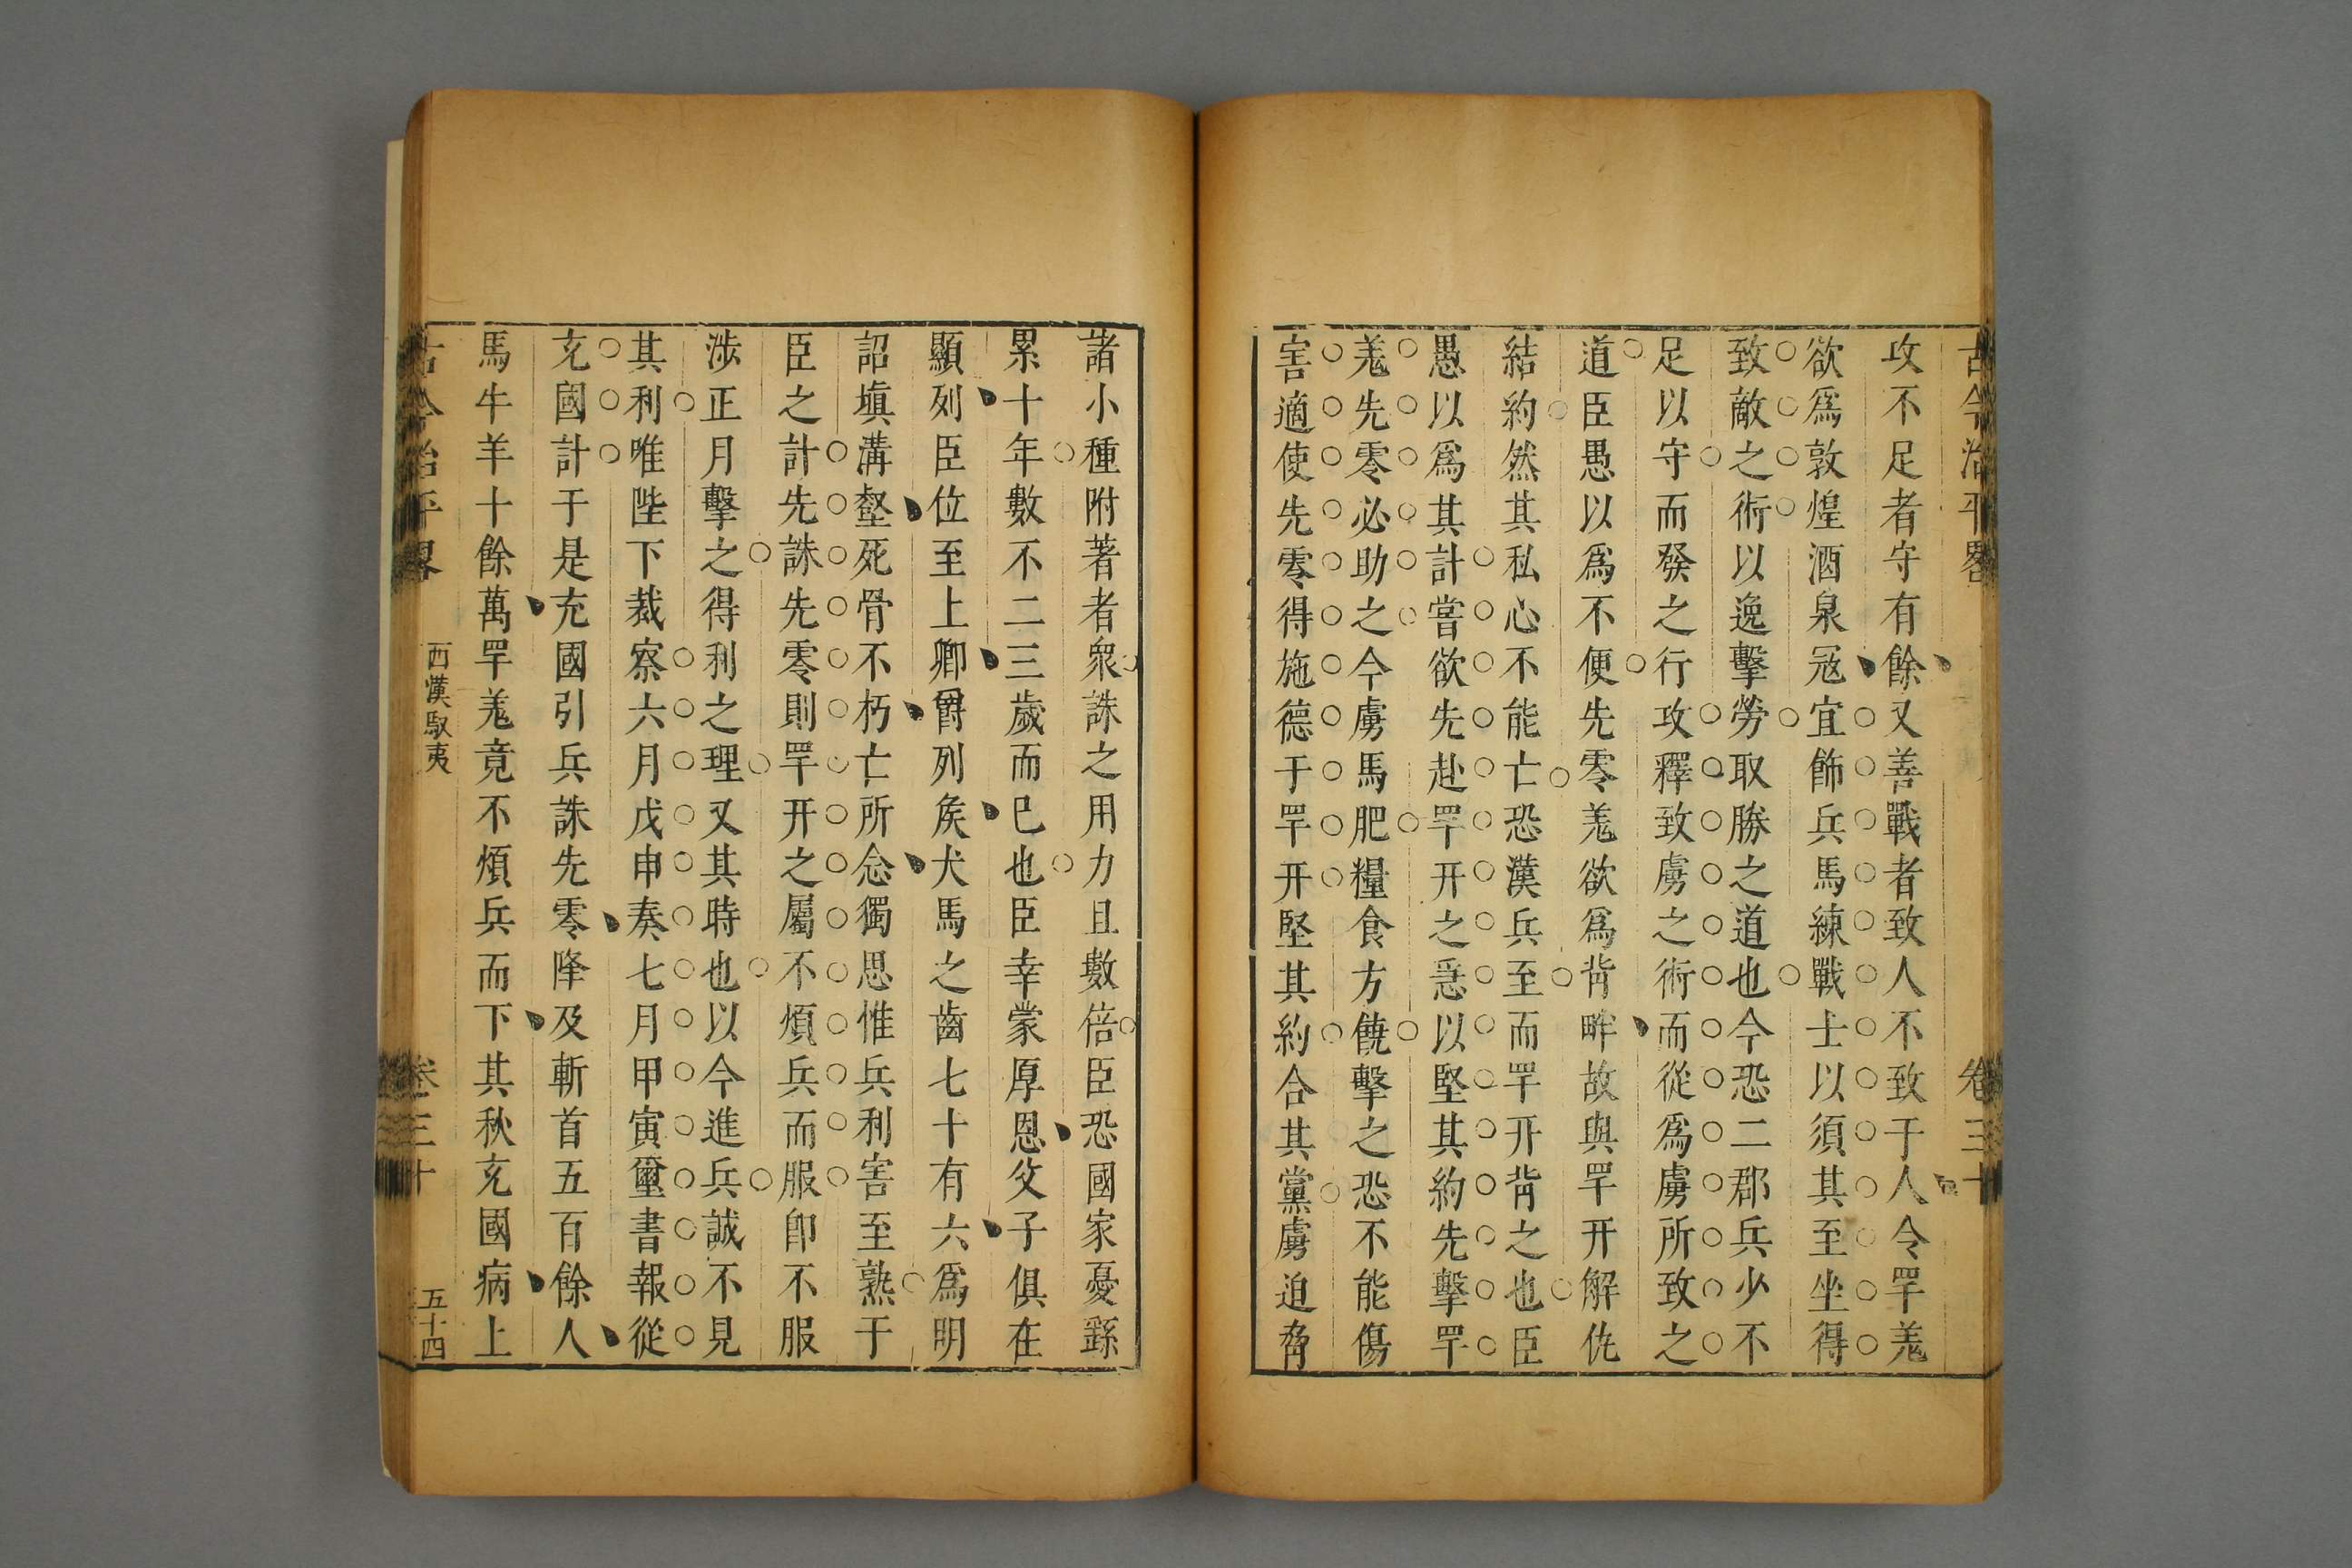 古今治平畧
卷三十
攻不足者守有餘又善戰者致人不致于人令罕羗
欲爲敦煌酒泉冦宜飾兵馬練戰士以須其至坐得
致敵之術以逸擊勞取勝之道也今恐二郡兵少不
足以守而發之行攻釋致虜之術而從爲虜所致之
道臣愚以爲不便先零羗欲爲背畔故與罕幵解仇
結約然其私心不能亡恐漢兵至而罕幵背之也臣
愚以爲其計嘗欲先赴罕幵之急以堅其約先擊罕
羗先零必助之今虜馬肥糧食方饒擊之恐不能傷
害適使先零得施德于罕幵堅其約合其黨虜迫脅
諸小種附著者衆誅之用力且數倍臣恐國家憂繇
累十年數不二三歲而已也臣幸蒙厚恩父子俱在
顯列臣位至上卿爵列矦犬馬之齒七十有六爲明
詔塡溝壑死骨不朽亡所念獨思惟兵利害至熟于
臣之計先誅先零則罕幵之屬不煩兵而服卽不服
涉正月擊之得利之理又其時也以今進兵誠不見
其利唯陛下裁察六月戊申奏七月甲寅璽書報從
充國計于是充國引兵誅先零降及斬首五百餘人
馬牛羊十餘萬罕羗竟不煩兵而下其秋充國病上
古今治平畧
西漢馭夷
卷三十
五十四